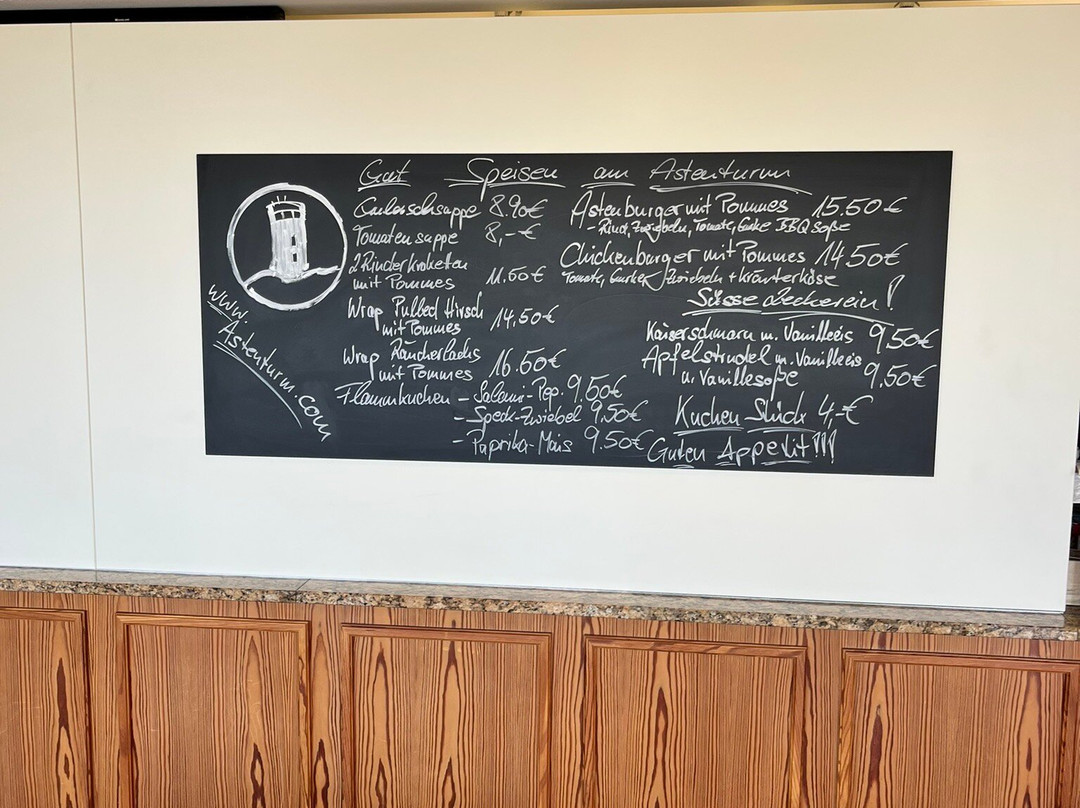 Gut Speisen am Astenturm
Gulaschsuppe 8.90€
Tomatensuppe 8,-€
2 Rinderkroketten
mit Pommes 11.50€
Wrap Pulled Hirsch
mit Pommes 14,50€
Wrap Räucherlachs
mit Pommes 16.50€
Flammkuchen - Salami-Pep. 9.50€
- Speck-Zwiebel 9,50€
- Paprika-Mais 9.50€
Astenburger mit Pommes 15.50€
- Rind, Zwiebeln, Tomate, Gurke BBQ Soße
Chickenburger mit Pommes 14,50€
Tomate, Gurke, Zwiebeln + Kräuterkäse
Süsse Leckerein!
Kaiserschmarn m. Vanilleeis 9,50€
Apfelstrudel m. Vanilleeis
u. Vanillesoße 9.50€
Kuchen Stück 4,-€
Guten Appetit!!!
www.
Astenturm.com